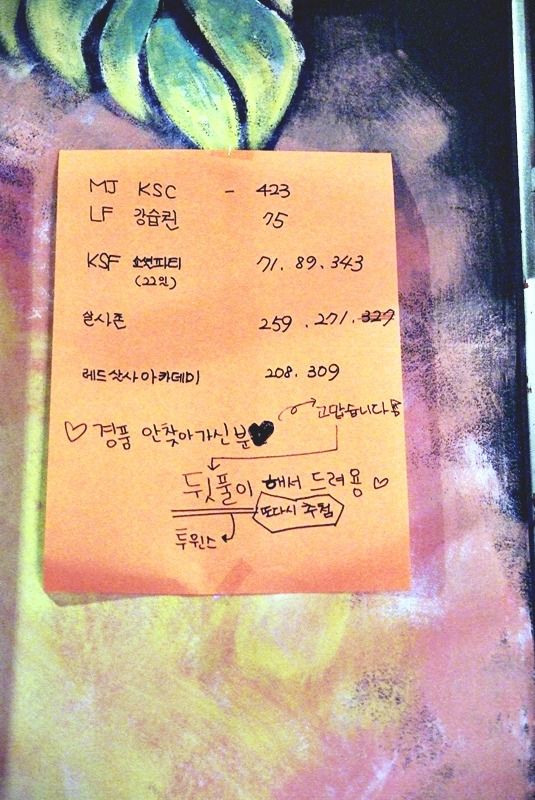 MJ KSC - 423
LF 강습권 75
KSF 소셜파티 71. 89. 343
(22인)
살시존 259 . 271. 327
레드살사아카데미 208. 309
♡ 경품 안찾아가신분♥ 고맙습니다
뒷풀이 해서 드려용 ♡
또다시 추첨
투원스